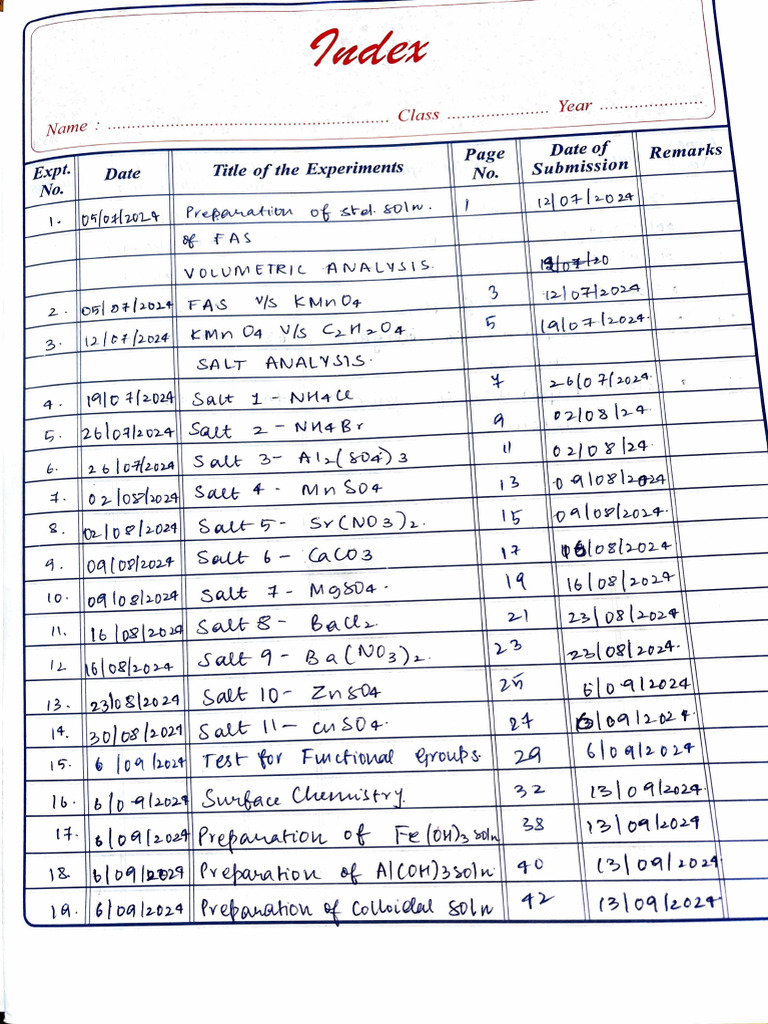 Index
Name : ........ Class ........ Year ........
Expt. No. Date Title of the Experiments Page No. Date of Submission Remarks
1. 05/07/2024 Preparation of std. soln. 1 12/07/2024
of FAS
VOLUMETRIC ANALYSIS.
2. 05/07/2024 FAS V/s KMnO4 3 12/07/2024
3. 12/07/2024 KMnO4 V/s C2H2O4 5 19/07/2024
SALT ANALYSIS.
4. 19/07/2024 Salt 1 - NH4Cl 7 26/07/2024
5. 26/07/2024 Salt 2 - NH4Br 9 02/08/24
6. 26/07/2024 Salt 3 - Al2(SO4)3 11 02/08/24
7. 02/08/2024 Salt 4 - MnSO4 13 09/08/2024
8. 02/08/2024 Salt 5 - Sr(NO3)2. 15 09/08/2024
9. 09/08/2024 Salt 6 - CaCO3 17 16/08/2024
10. 09/08/2024 Salt 7 - MgSO4. 19 16/08/2024
11. 16/08/2024 Salt 8 - BaCl2 21 23/08/2024
12 16/08/2024 Salt 9 - Ba(NO3)2. 23 23/08/2024
13. 23/08/2024 Salt 10 - ZnSO4 25 6/09/2024
14. 30/08/2024 Salt 11 - CuSO4. 27 6/09/2024
15. 6/09/2024 Test for Functional Groups 29 6/09/2024
16. 6/09/2024 Surface Chemistry. 32 13/09/2024
17. 6/09/2024 Preparation of Fe(OH)3 soln 38 13/09/2024
18. 6/09/2024 Preparation of Al(OH)3 soln 40 13/09/2024
19. 6/09/2024 Preparation of Colloidal soln 42 13/09/2024